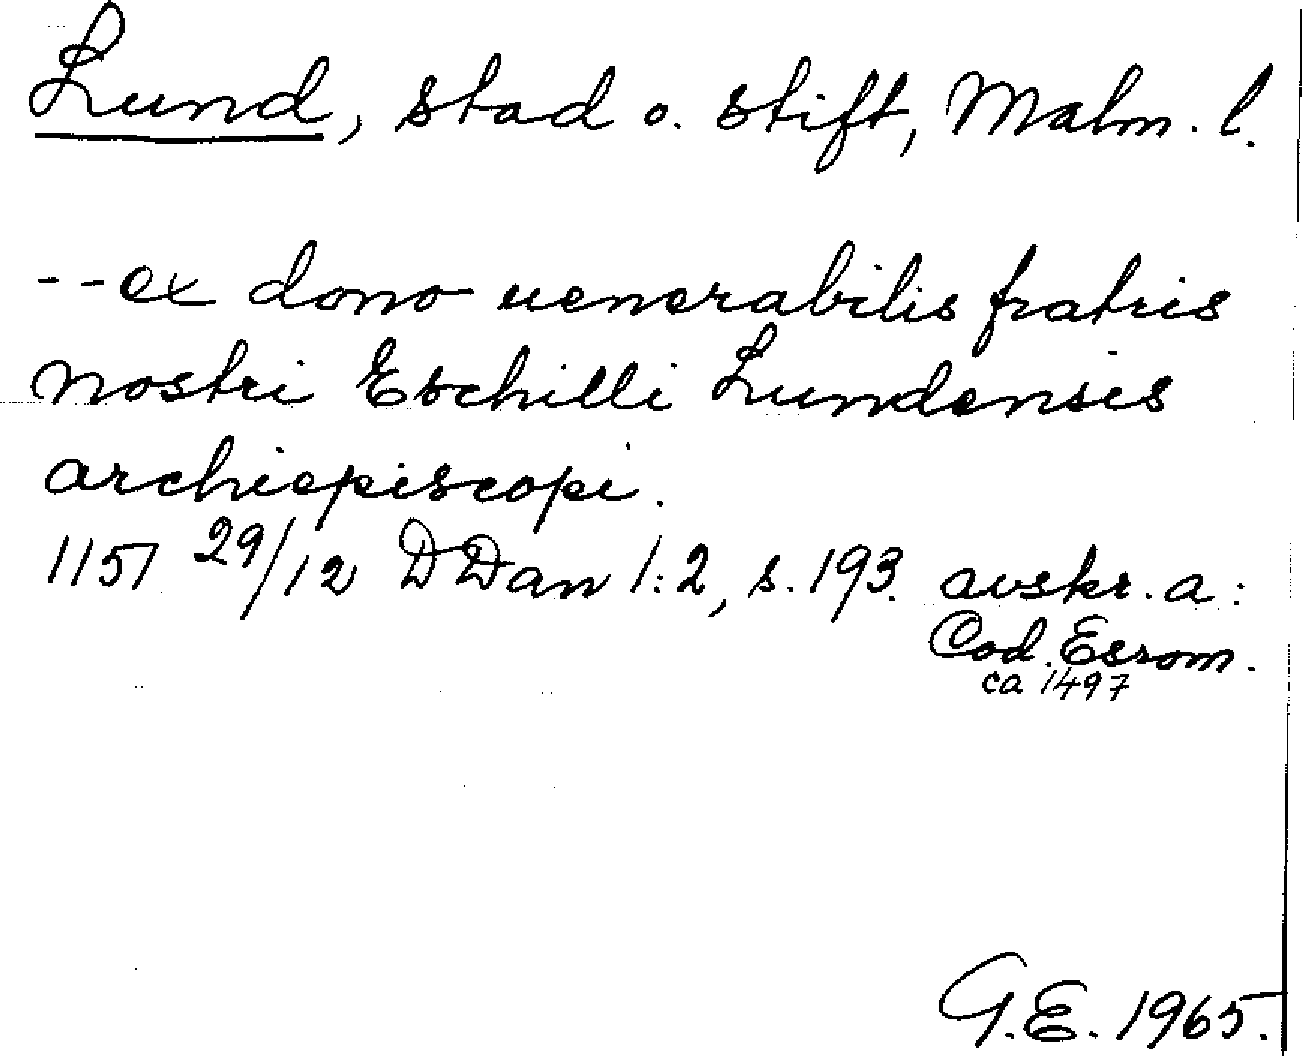 Lund, stad o. stift, Malm. l.
--ex dono uenerabilis fratris
nostri Eschilli Lundensis
archiepiscopi.
1157 29/12 DDan 1:2, s. 193. avskr. a:
Cod. Esrom.
ca 1497
G.E. 1965.